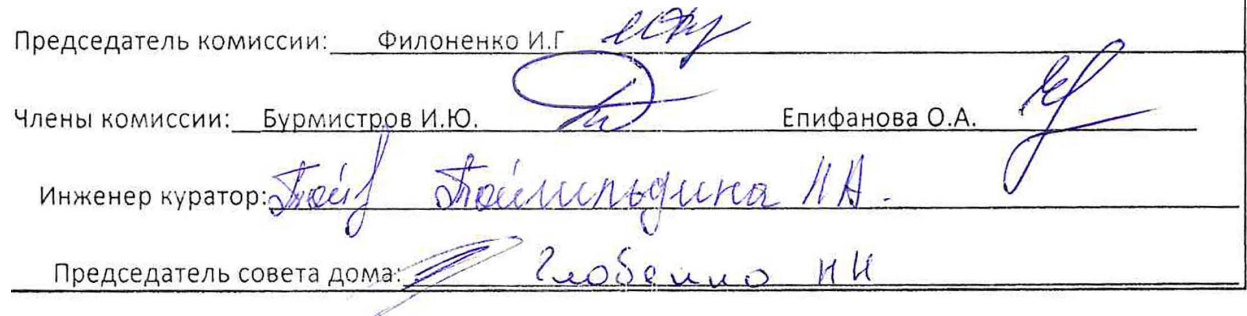 Председатель комиссии: Филоненко И.Г
Члены комиссии: Бурмистров И.Ю. Епифанова О.А.
Инженер куратор: Таймильдина Л А.
Председатель совета дома: Глобенко Н Н